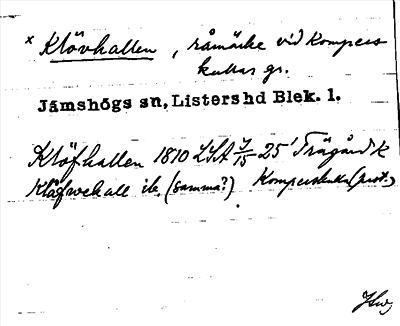 x Klövhallen, råmärke vid Kompers
kullas gr.
Jämshögs sn, Listers hd Blek. 1.
Klöfhallen 1810 LSA J/15 25' Trägård k
Klöfwehall ib. (samma?). Komperskulla (prot.)